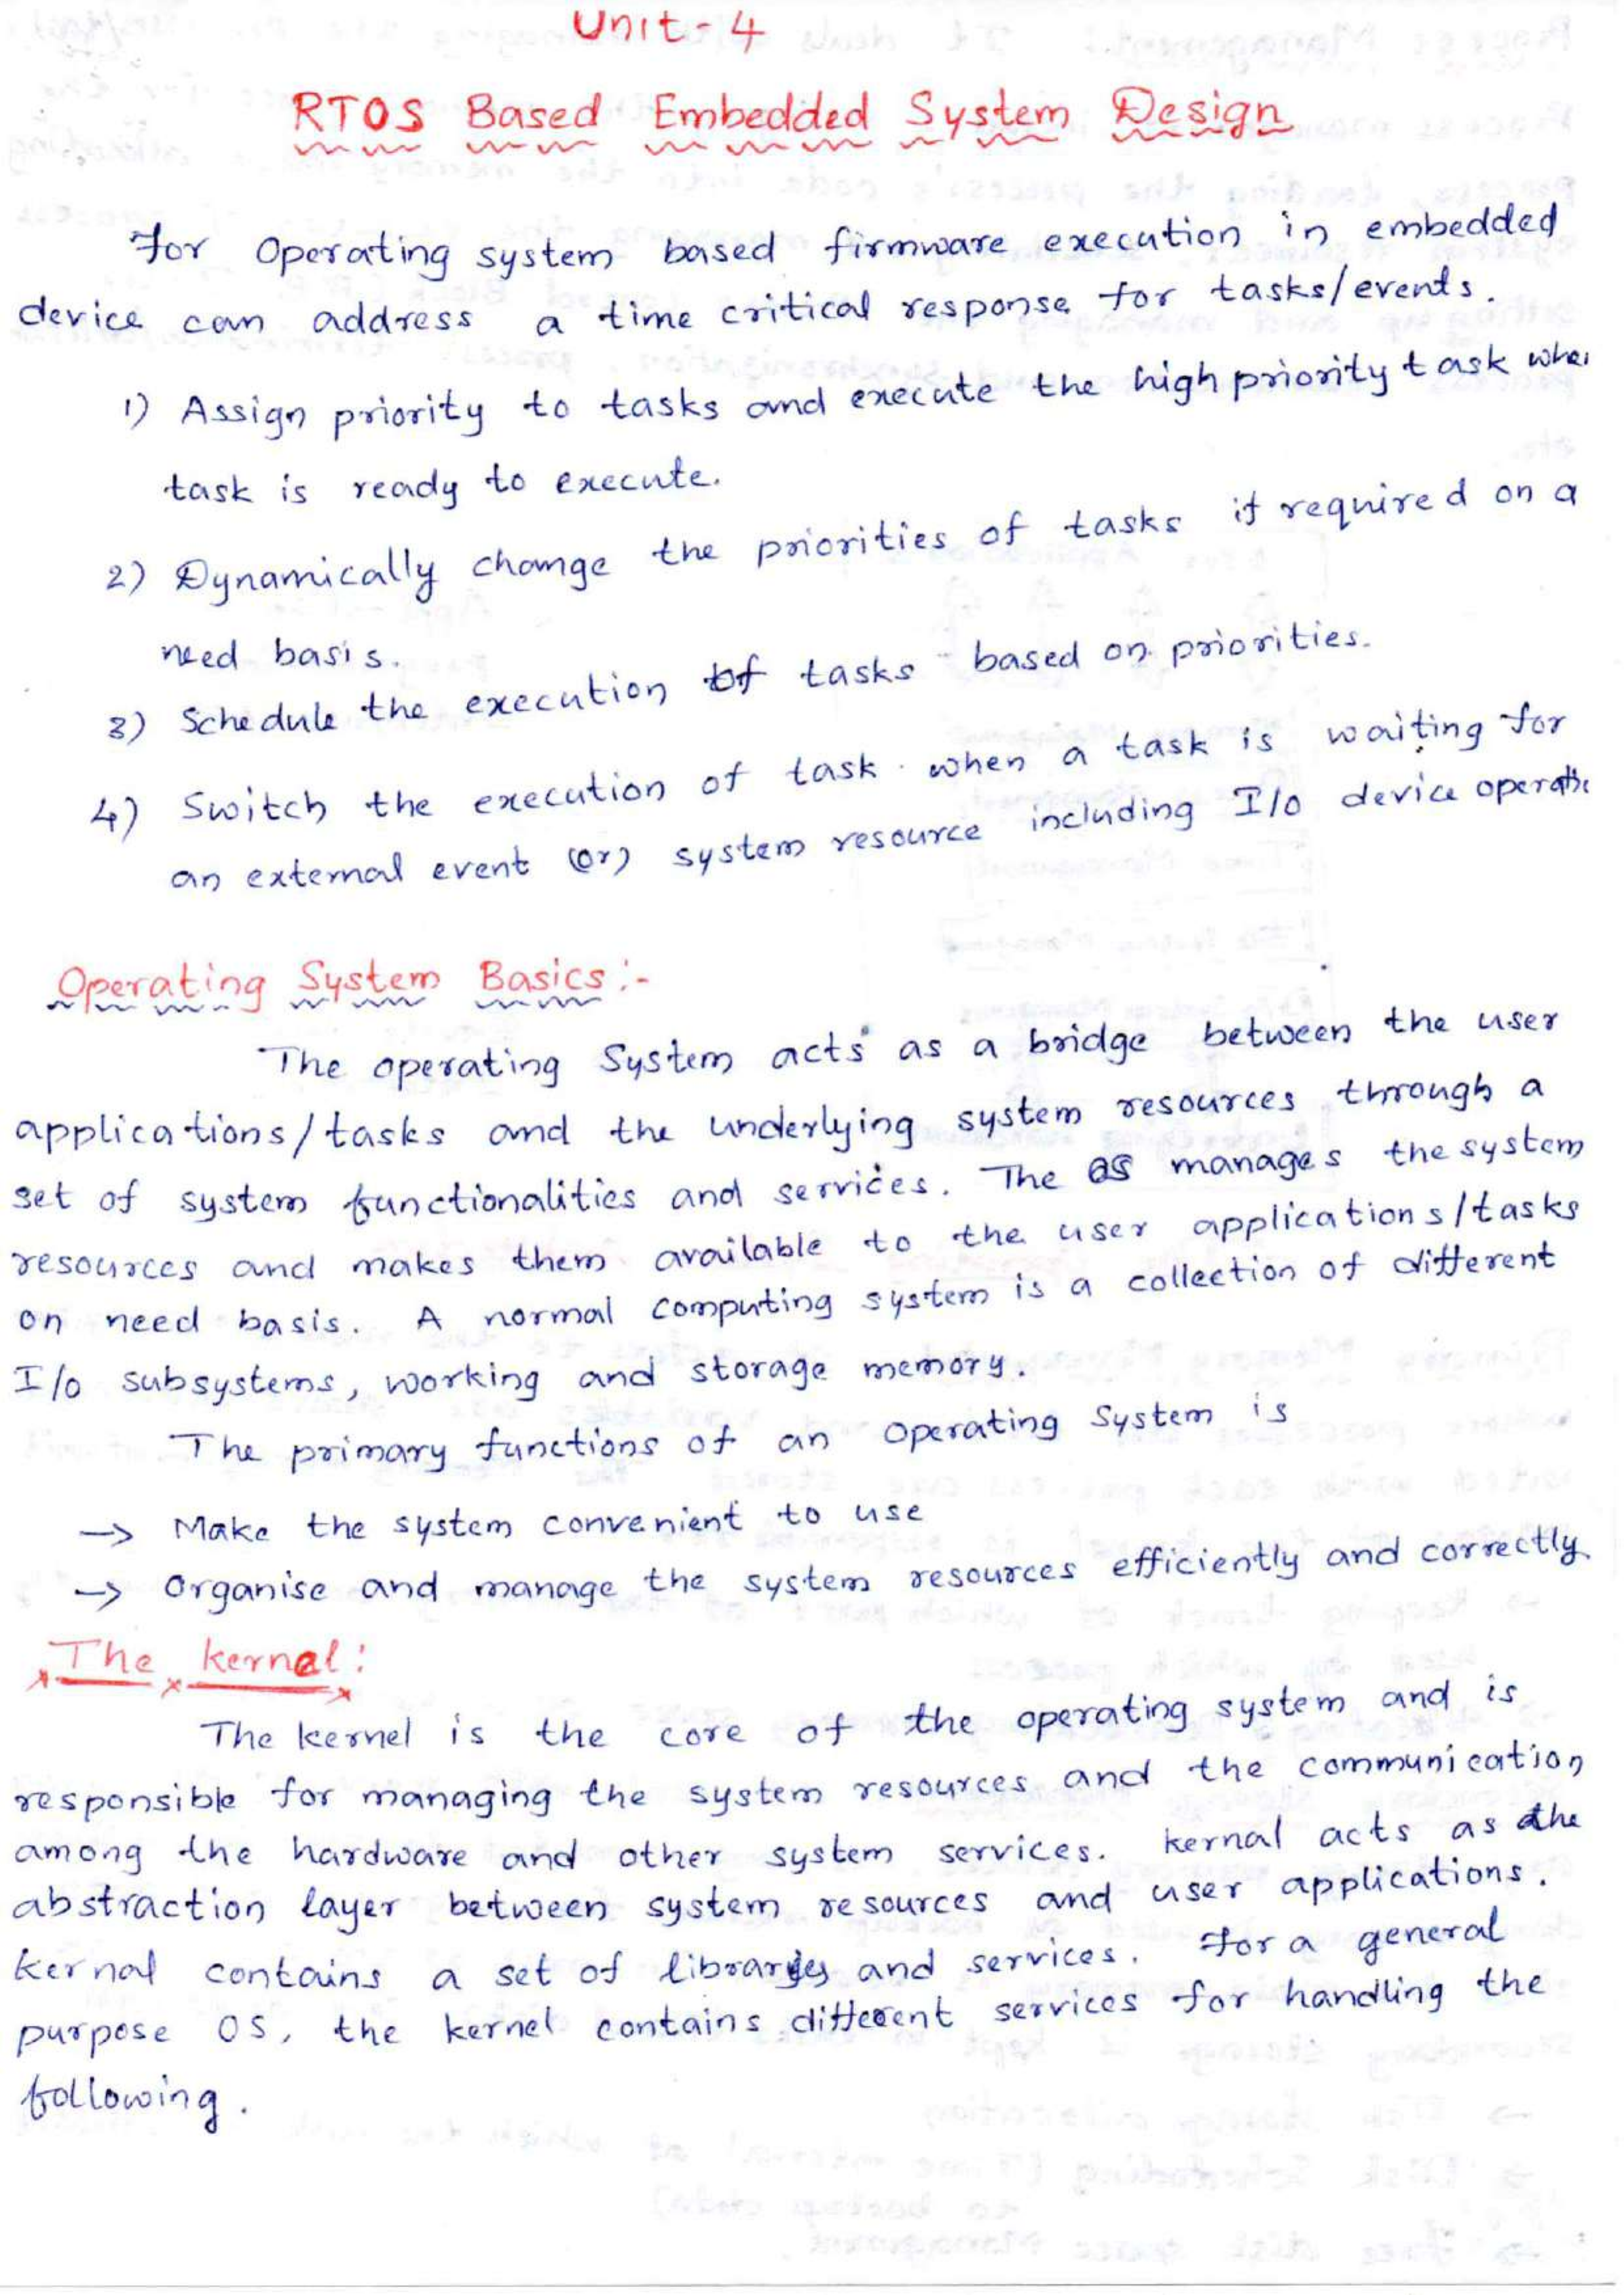 Unit-4
RTOS Based Embedded System Design
For Operating system based firmware execution in embedded
device can address a time critical response for tasks/events.
1) Assign priority to tasks and execute the high priority task
task is ready to execute.
2) Dynamically change the priorities of tasks if required on a
need basis.
3) Schedule the execution of tasks based on priorities.
4) Switch the execution of task when a task is waiting for
an external event (or) system resource including I/O device
Operating System Basics:-
The operating System acts as a bridge between the user
applications/tasks and the underlying system resources through a
set of system functionalities and services. The OS manages the system
resources and makes them available to the user applications/tasks
on need basis. A normal computing system is a collection of different
I/o subsystems, working and storage memory.
The primary functions of an operating System is
→ Make the system convenient to use
→ Organise and manage the system resources efficiently and correctly.
The kernel:
The kernel is the core of the operating system and is
responsible for managing the system resources and the communication
among the hardware and other system services. kernal acts as the
abstraction layer between system resources and user applications.
kernal contains a set of libraries and services. For a general
purpose OS, the kernel contains different services for handling the
following.